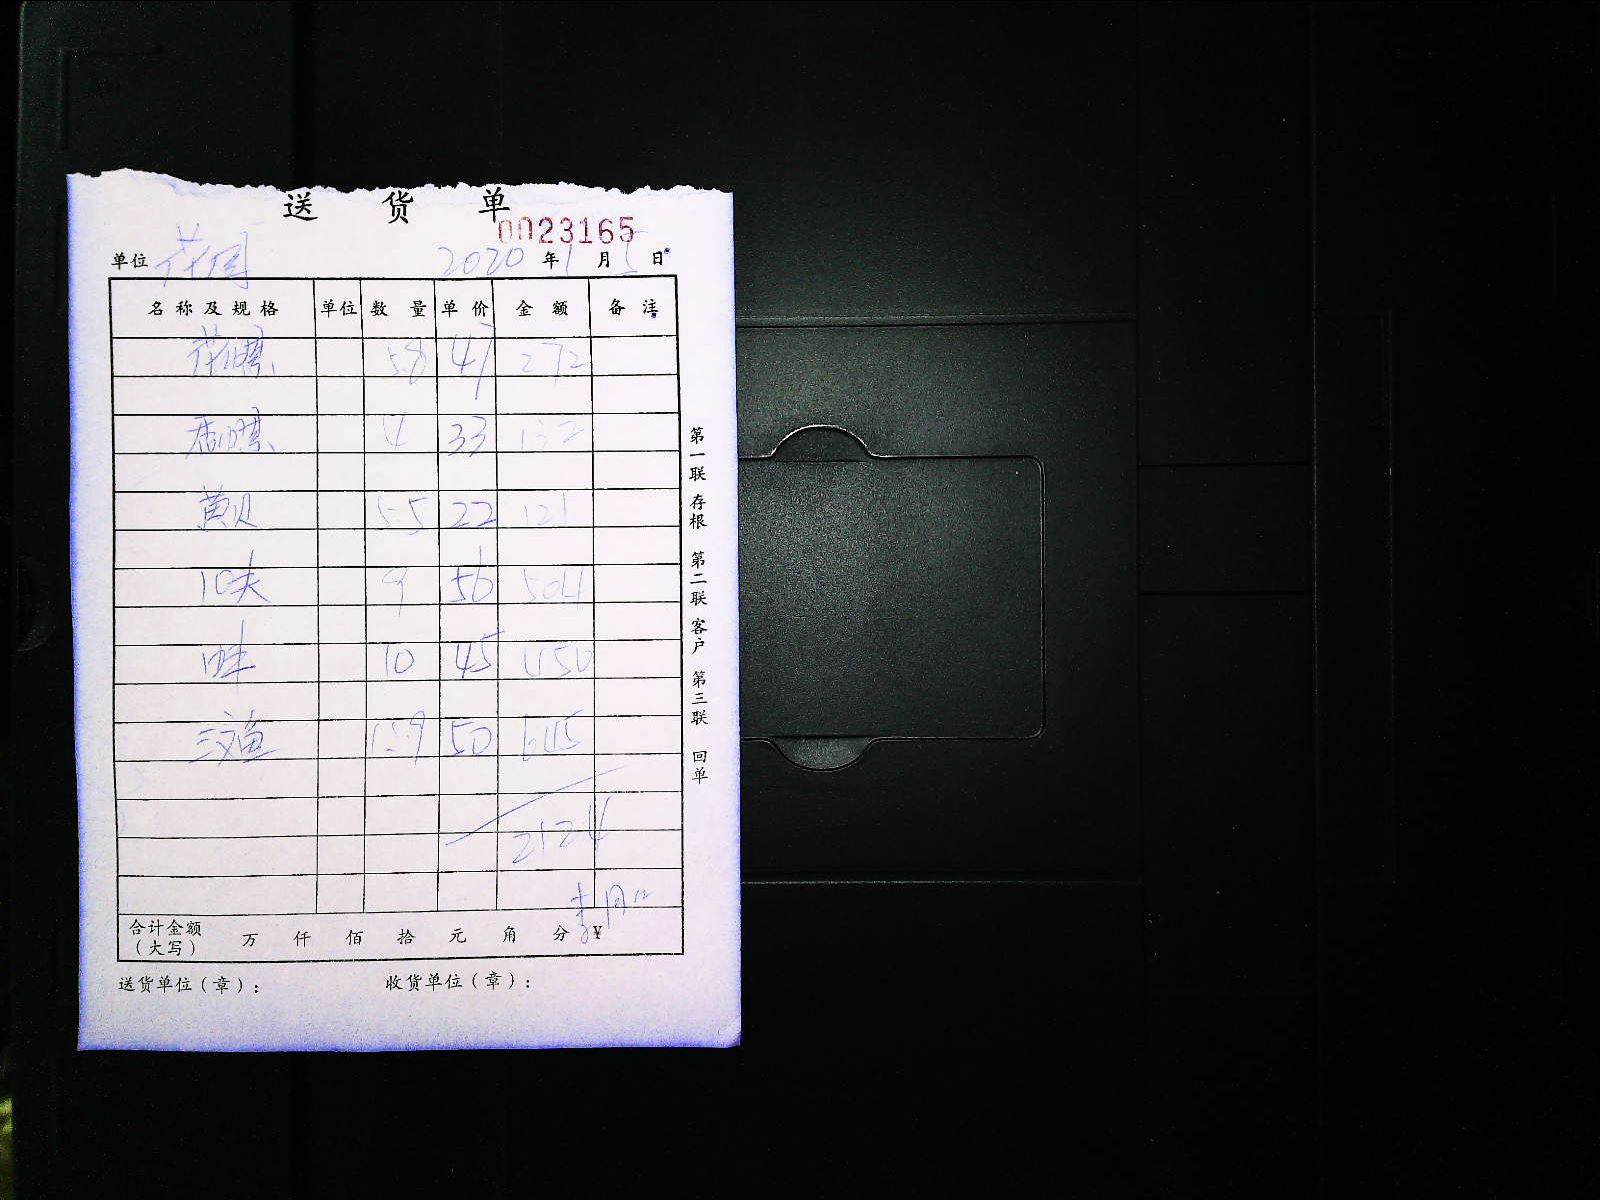 送 货 单
0023165
单位 花园 2020 年 1 月 5 日
名称及规格 单位 数 量 单 价 金 额 备 注
5.8 47 272
4 33 132
黄贝 5.5 22 121
10夫 9 56 504
10 45 450
三文鱼 12.9 50 645
2124
合计金额
(大写) 万 仟 佰 拾 元 角 分 ¥
送货单位(章): 收货单位(章):
第一联 存根 第二联 客户 第三联 回单